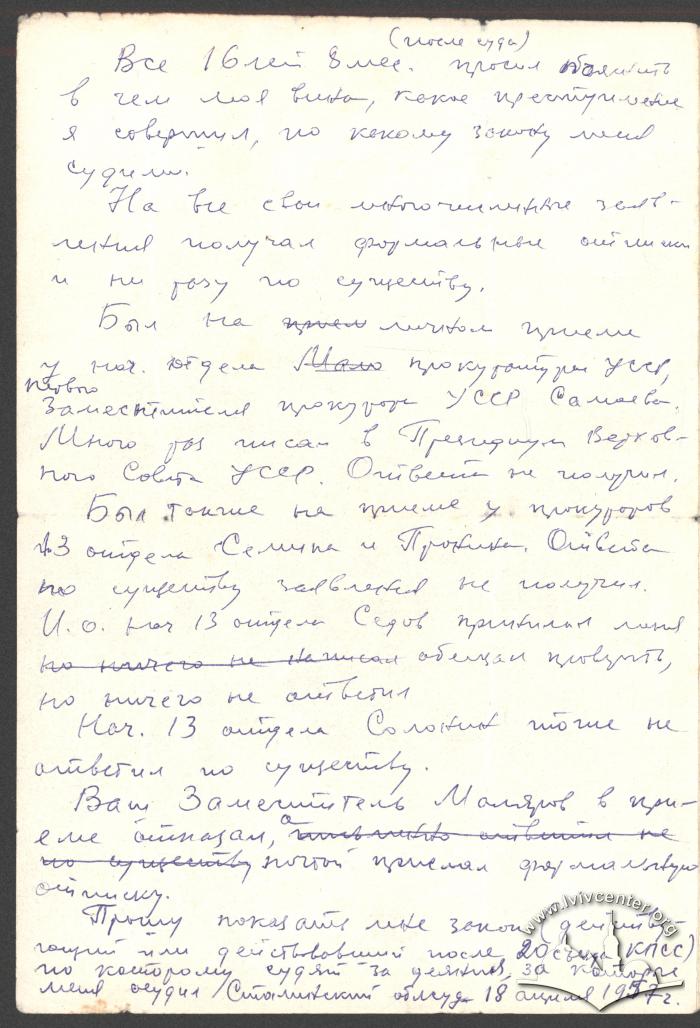 (после суда)
Все 16 лет 8 мес. просил объяснить
в чем моя вина, какое преступление
я совершил, по какому закону меня
судили.
На все свои многочисленные заяв-
ления получал формальные отписки
и ни разу по существу.
Был на прием личном приеме
у нач. отдела прокуратуры УССР,
первого
Заместителя прокурора УССР Самаева.
Много раз писал в Президиум Верхов-
ного Совета УССР. Ответа не получил.
Был также на приеме у прокуроров
13 отдела Семина и Пронина. Ответа
по существу заявления не получил.
И.о. нач 13 отдела Седов принимал меня
но ничего не написал обещал проверить,
но ничего не ответил
Нач. 13 отдела Солонин тоже не
ответил по существу.
Ваш Заместитель Маляров в при-
еме отказал, а ответил не
по существу почтой прислал формальную
отписку.
Прошу показать мне закон действу-
ющий или действовавший после 20 съезда КПСС)
по которому судят за деяния, за которые
меня осудил Сталинский облсуд 18 апреля 1957 г.
www.lvivcenter.org